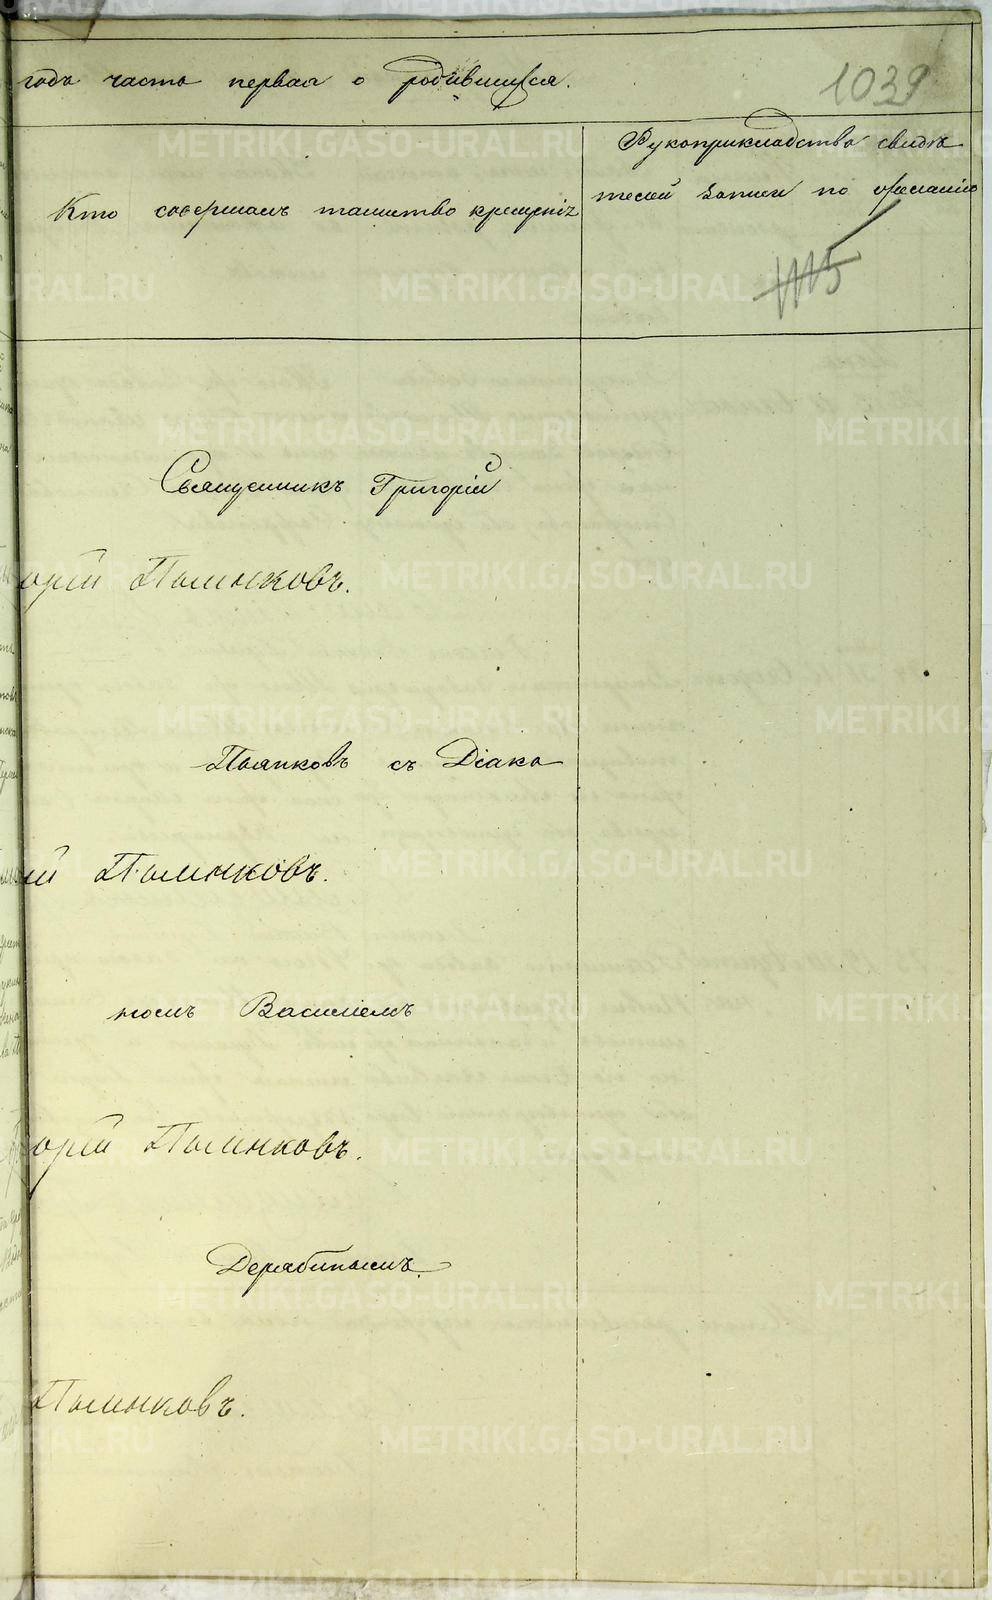 годъ часть первая о родившихся.
1039
Кто совершалъ таинство крещенія
Рукоприкладство свидѣ
телей записи по желанію
Священникъ Григорій
орій Пылинковъ.
Пылинковъ съ Діако
ій Пылинковъ.
номъ Василіемъ
орій Пылинковъ.
Дерябинымъ.
Пылинковъ.
METRIKI.GASO-URAL.RU